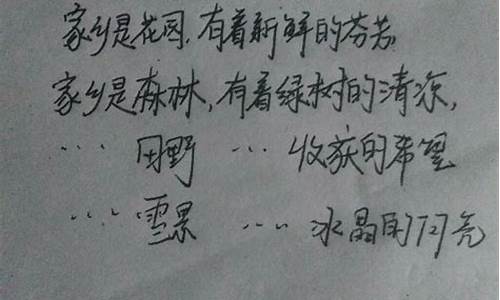 家乡是花园,有着新鲜的芬芳,
家乡是森林,有着绿树的清凉,
... 田野 ... 收获的希望
... 雪景 .... 水晶的闪亮